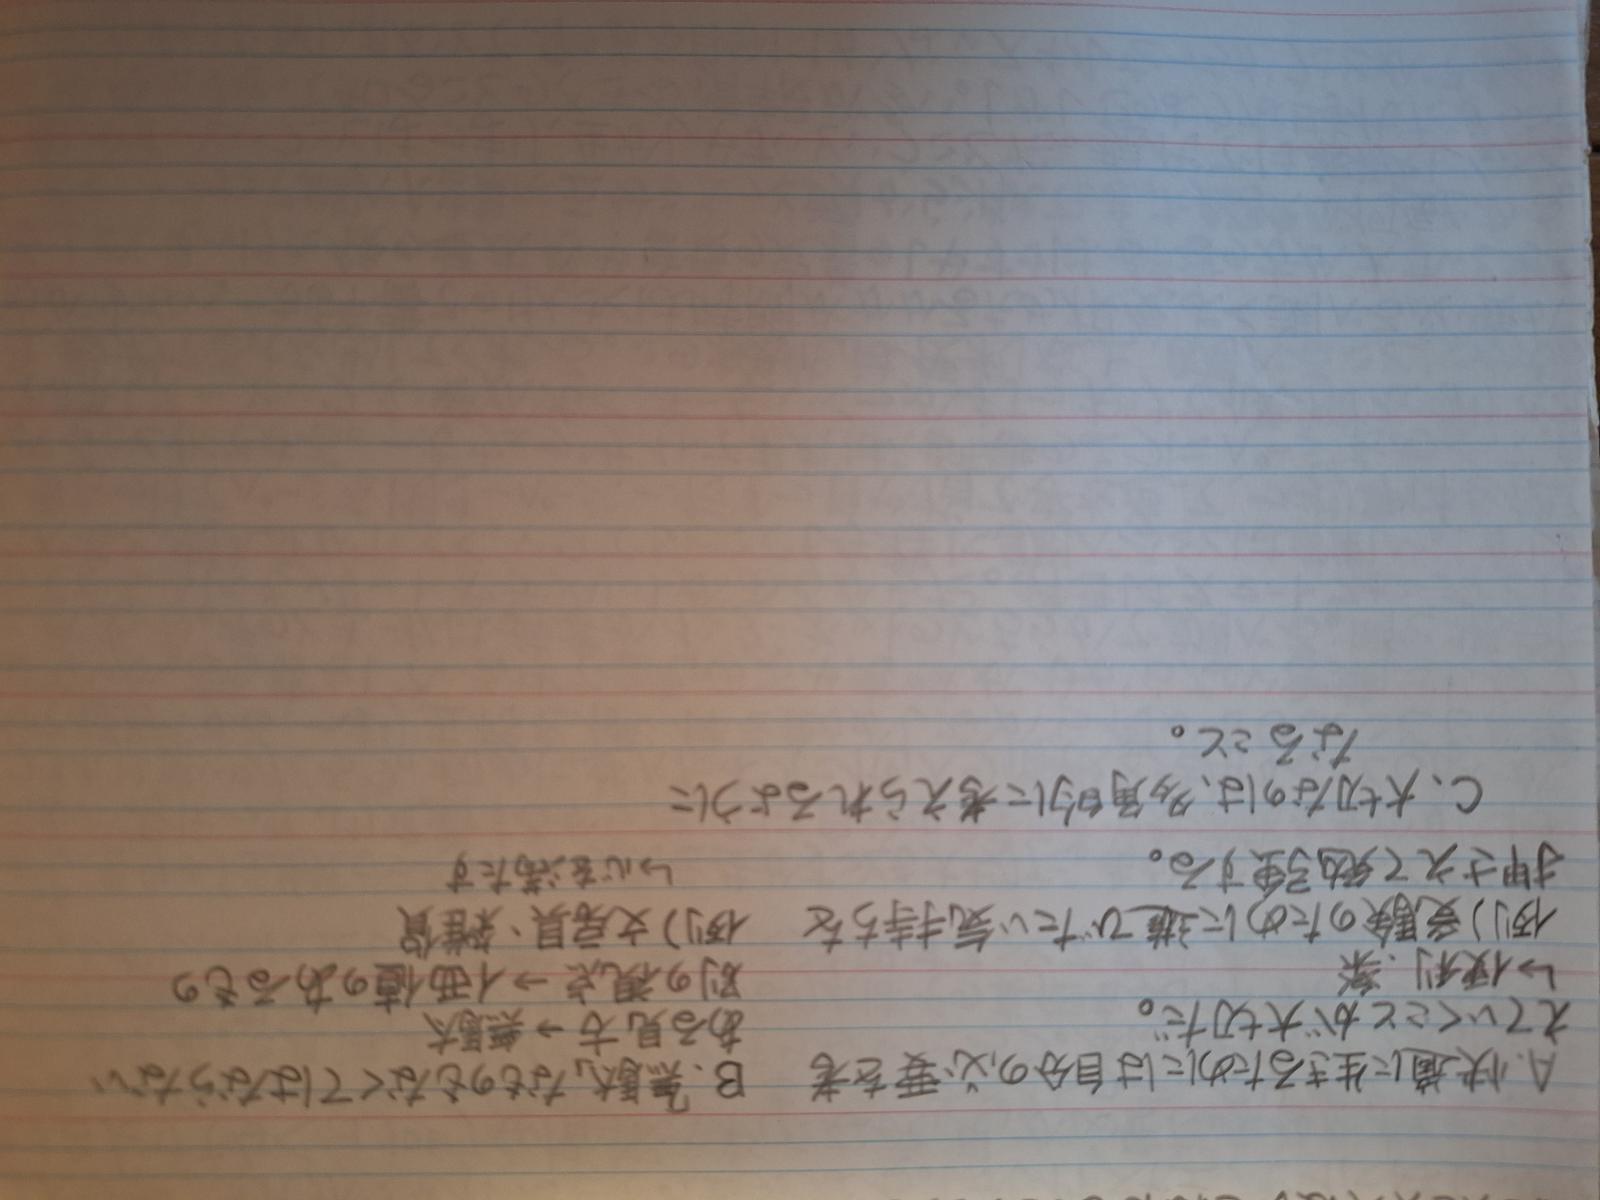 A.快適に生きるためには自分の必要を考
えていくことが大切だ。
↳便利、楽
例)受験のために遊びたい気持ちを
押さえて勉強する。
B.「無駄」なものとなくてはならない
ある見方→無駄
別の視点→価値のあるもの
例)文房具、雑貨
↳心を満たす
C、大切なのは、多角的に考えられるように
なること。